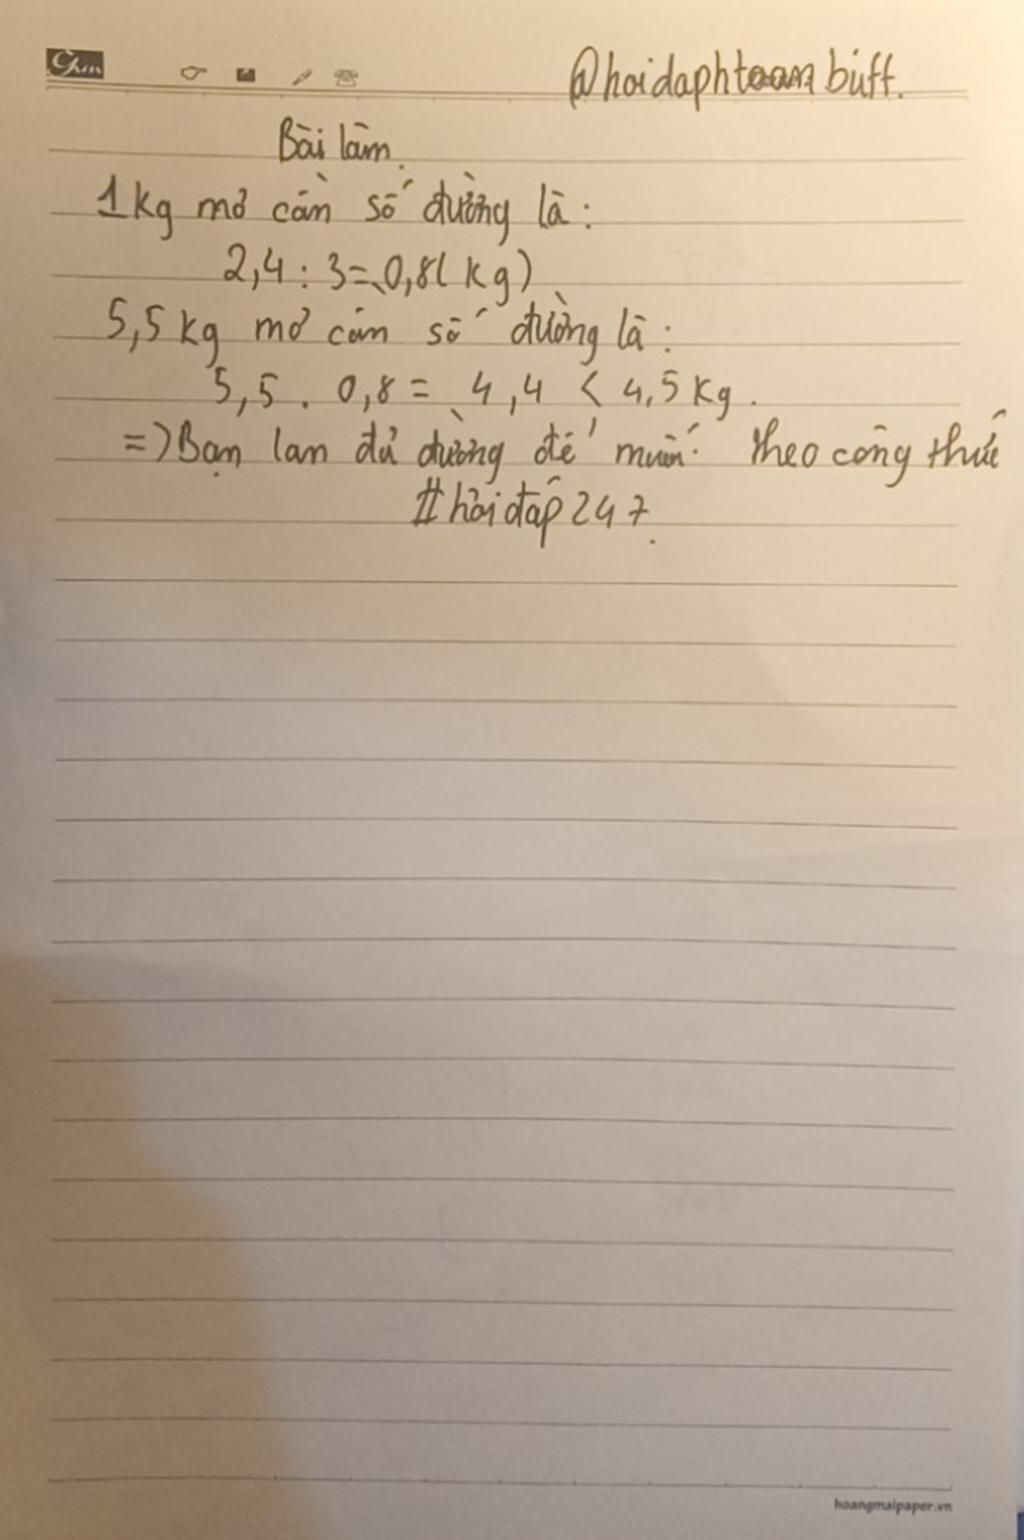 Ghim
@hoidaphtoan buff.
Bài làm.
1kg mơ cần số đường là:
2,4 : 3 = 0,8 (kg)
5,5 kg mơ cần số đường là:
5,5 . 0,8 = 4,4 < 4,5 kg.
=> Bạn lan đủ đường để muối theo công thức
#hỏi đấp 247.
hoangmaipaper.vn